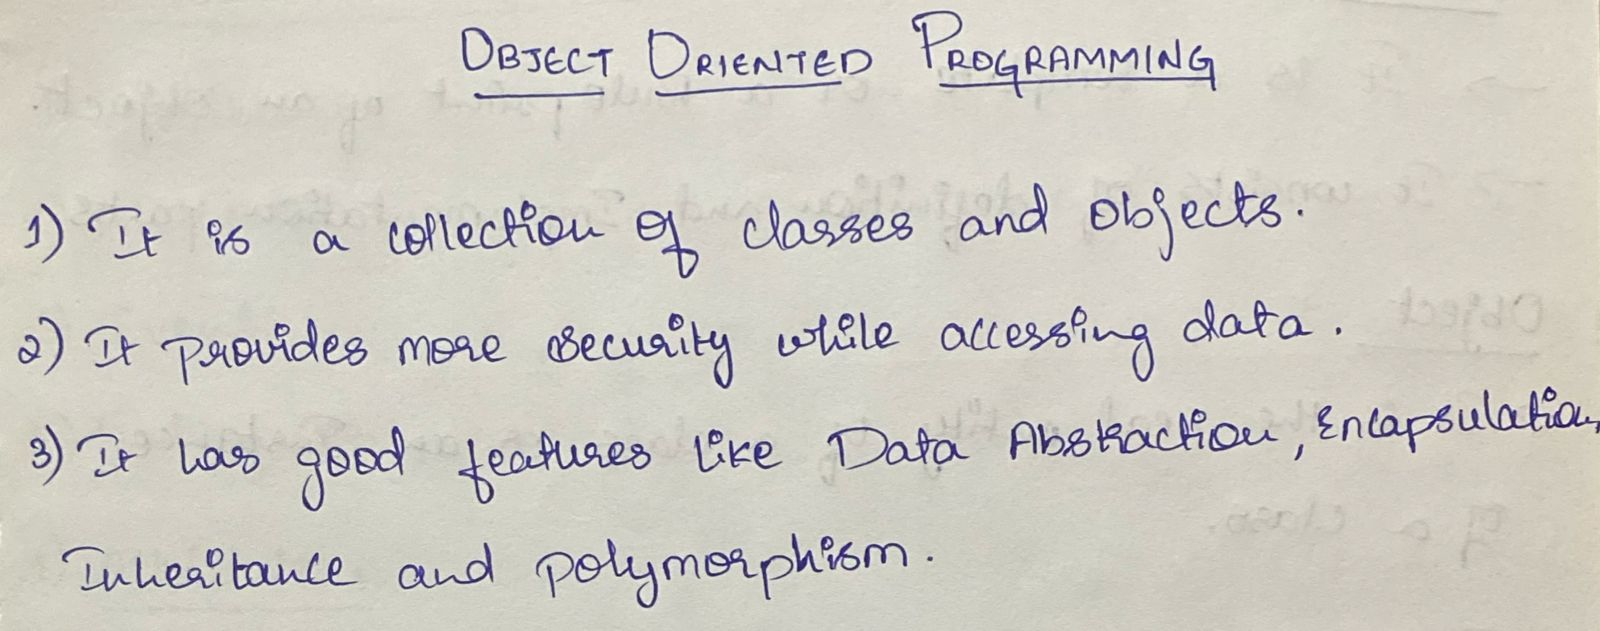 OBJECT ORIENTED PROGRAMMING
1) It is a collection of classes and objects.
2) It provides more security while accessing data.
3) It has good features like Data Abstraction, Encapsulation,
Inheritance and polymorphism.